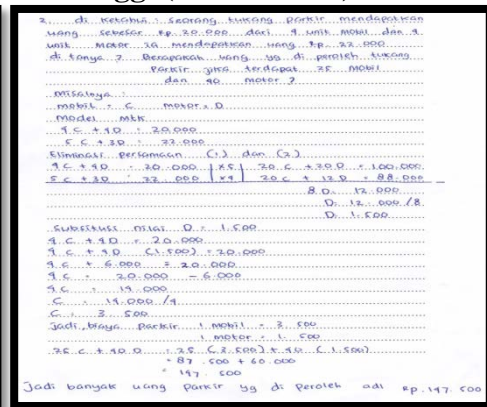 2. di ketahui : seorang tukang parkir mendapatkan
uang sebesar Rp. 20.000 dari 4 unit mobil dan 4
unit motor ia mendapatkan uang Rp. 22.000
di tanya ? Berapakah uang yg di peroleh tukang
parkir jika terdapat 25 mobil
dan 40 motor ?
misalnya :
mobil = C motor = D
model mtk
4C + 4D = 20.000
5C + 3D = 22.000
Eliminasi persamaan (1) dan (2)
4C + 4D = 20.000 | x5 | 20C + 20D = 100.000
5C + 3D = 22.000 | x4 | 20C + 12D = 88.000
8D = 12.000
D = 12.000 /8
D = 1.500
Substitusi nilai D = 1.500
4C + 4D = 20.000
4C + 4D (1.500) = 20.000
4C + 6.000 = 20.000
4C = 20.000 - 6.000
4C = 14.000
C = 14.000 /4
C = 3.500
Jadi, biaya parkir 1 mobil = 3.500
1 motor = 1.500
25C + 40D = 25 (3.500) + 40 (1.500)
= 87.500 + 60.000
= 147.500
Jadi banyak uang parkir yg di peroleh adl Rp. 147.500